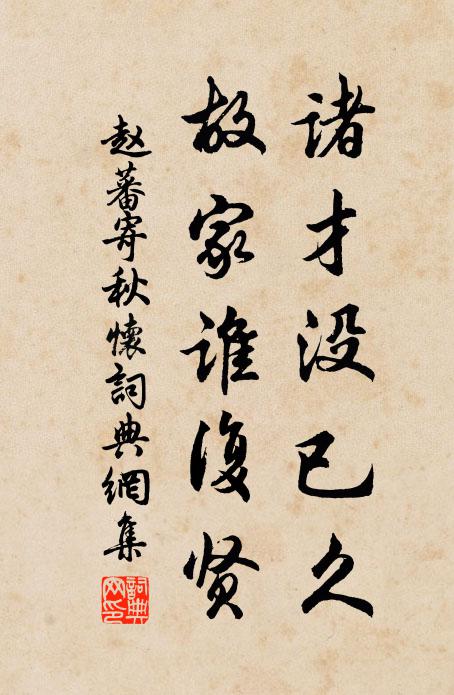 諸才没已久
故家谁復贤
赵蕃寄秋懷詞典網集
詞典网印